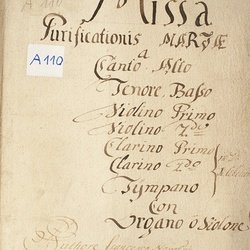 A 110
Missa
Purificationis MARIÆ
A 110
a
Canto Alto
Tenore Basso
Violino Primo
Violino 2do
Clarino Primo
Clarino 2do
Tympano
Con
Organo o Violone
Authore